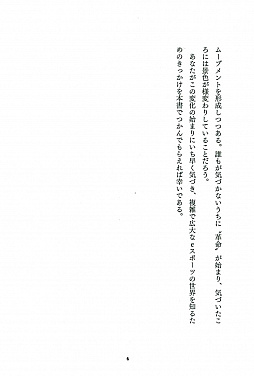 ムーブメントを形成しつつある。誰もが気づかないうちに〝革命〟が始まり、気づいたこ
ろには景色が様変わりしていることだろう。
　あなたがこの変化の始まりにいち早く気づき、複雑で広大なeスポーツの世界を知るた
めのきっかけを本書でつかんでもらえれば幸いである。